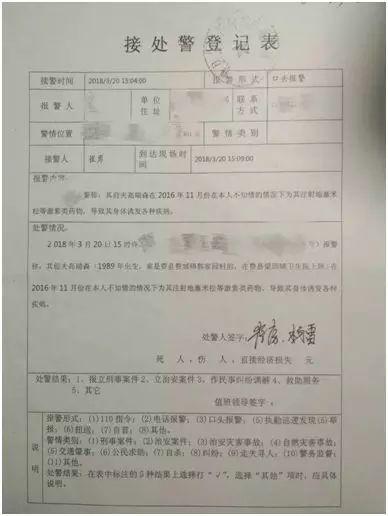 接处警登记表
接警时间 2018/3/20 15:04:00 报警形式 口头报警
报警人 单位住址 联系方式
警情位置 警情类别
接警人 崔勇 到达现场时间 2018/3/20 15:09:00
报警内容:
警称,其前夫高瑞森在2016年11月份在本人不知情的情况下为其注射地塞米
松等激素类药物,导致其身体诱发各种疾病。
处警情况:
2018年3月20日15时许 报警
称,其前夫高瑞森(1989年出生,家是费县费城镇 村的,在费县梁邱镇卫生院上班)在
2016年11月份在本人不知情的情况下为其注射地塞米松等激素类药物,导致其身体诱发各种
疾病。
处警人签字:
死 人,伤 人,直接经济损失 元
处警结果:1、报立刑事案件 2、立治安案件 3、作民事纠纷调解 4、救助服务
5、其它
值班领导签字:
说明
报警形式:(1)110指令;(2)电话报警;(3)口头报警;(5)执勤巡逻发现(5)举
报;(6)扭送;(7)自首;(8)其他。
警情类别:(1)刑事案件;(2)治安案件;(3)治安灾害事故;(4)自然灾害事故;
(5)交通肇事;(6)公民求助;(7)自杀;(8)纠纷;(9)走失寻人;(10)警务监督;
(11)其他。
处警结果:在表中标注的5种结果上选择打“√”,选择“其他”项时,应具体
说明。